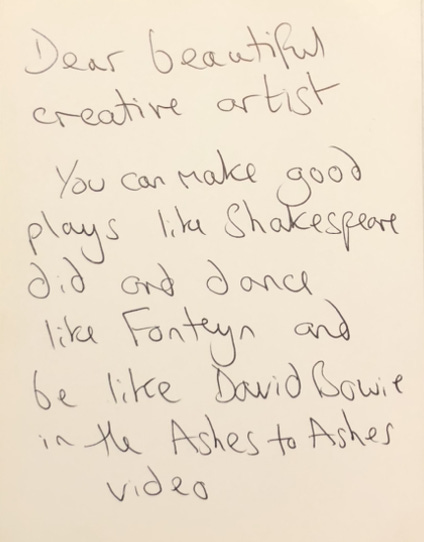 Dear beautiful
creative artist
You can make good
plays like Shakespeare
did and dance
like Fonteyn and
be like David Bowie
in the Ashes to Ashes
video